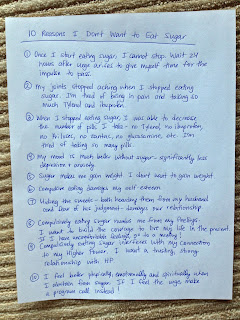 10 Reasons I Don't Want to Eat Sugar
① Once I start eating sugar, I cannot stop. Wait 24
hours after urge arises to give myself time for the
impulse to pass.
② My joints stopped aching when I stopped eating
sugar. I'm tired of being in pain and taking so
much Tylenol and Ibuprofen.
③ When I stopped eating sugar, I was able to decrease
the number of pills I take - no Tylenol, no ibuprofen,
no Rolaids, no zantac, no glucosamine etc. I'm
tired of eating so many pills.
④ My mood is much better without sugar - significantly less
depression & anxiety.
⑤ Sugar makes me gain weight. I don't want to gain weight.
⑥ Compulsive eating damages my self esteem.
⑦ Hiding the sweets - both hoarding them from my husband
and fear of his judgement - damages our relationship
⑧ Compulsively eating sugar numbs me from my feelings.
I want to build the courage to live my life in the present.
If I have uncomfortable feelings, go to a meeting!
⑨ Compulsively eating sugar interferes with my connection
to my Higher Power. I want a trusting, strong
relationship with HP
⑩ I feel better physically, emotionally and spiritually when
I abstain from sugar. If I feel the urge, make
a program call instead!